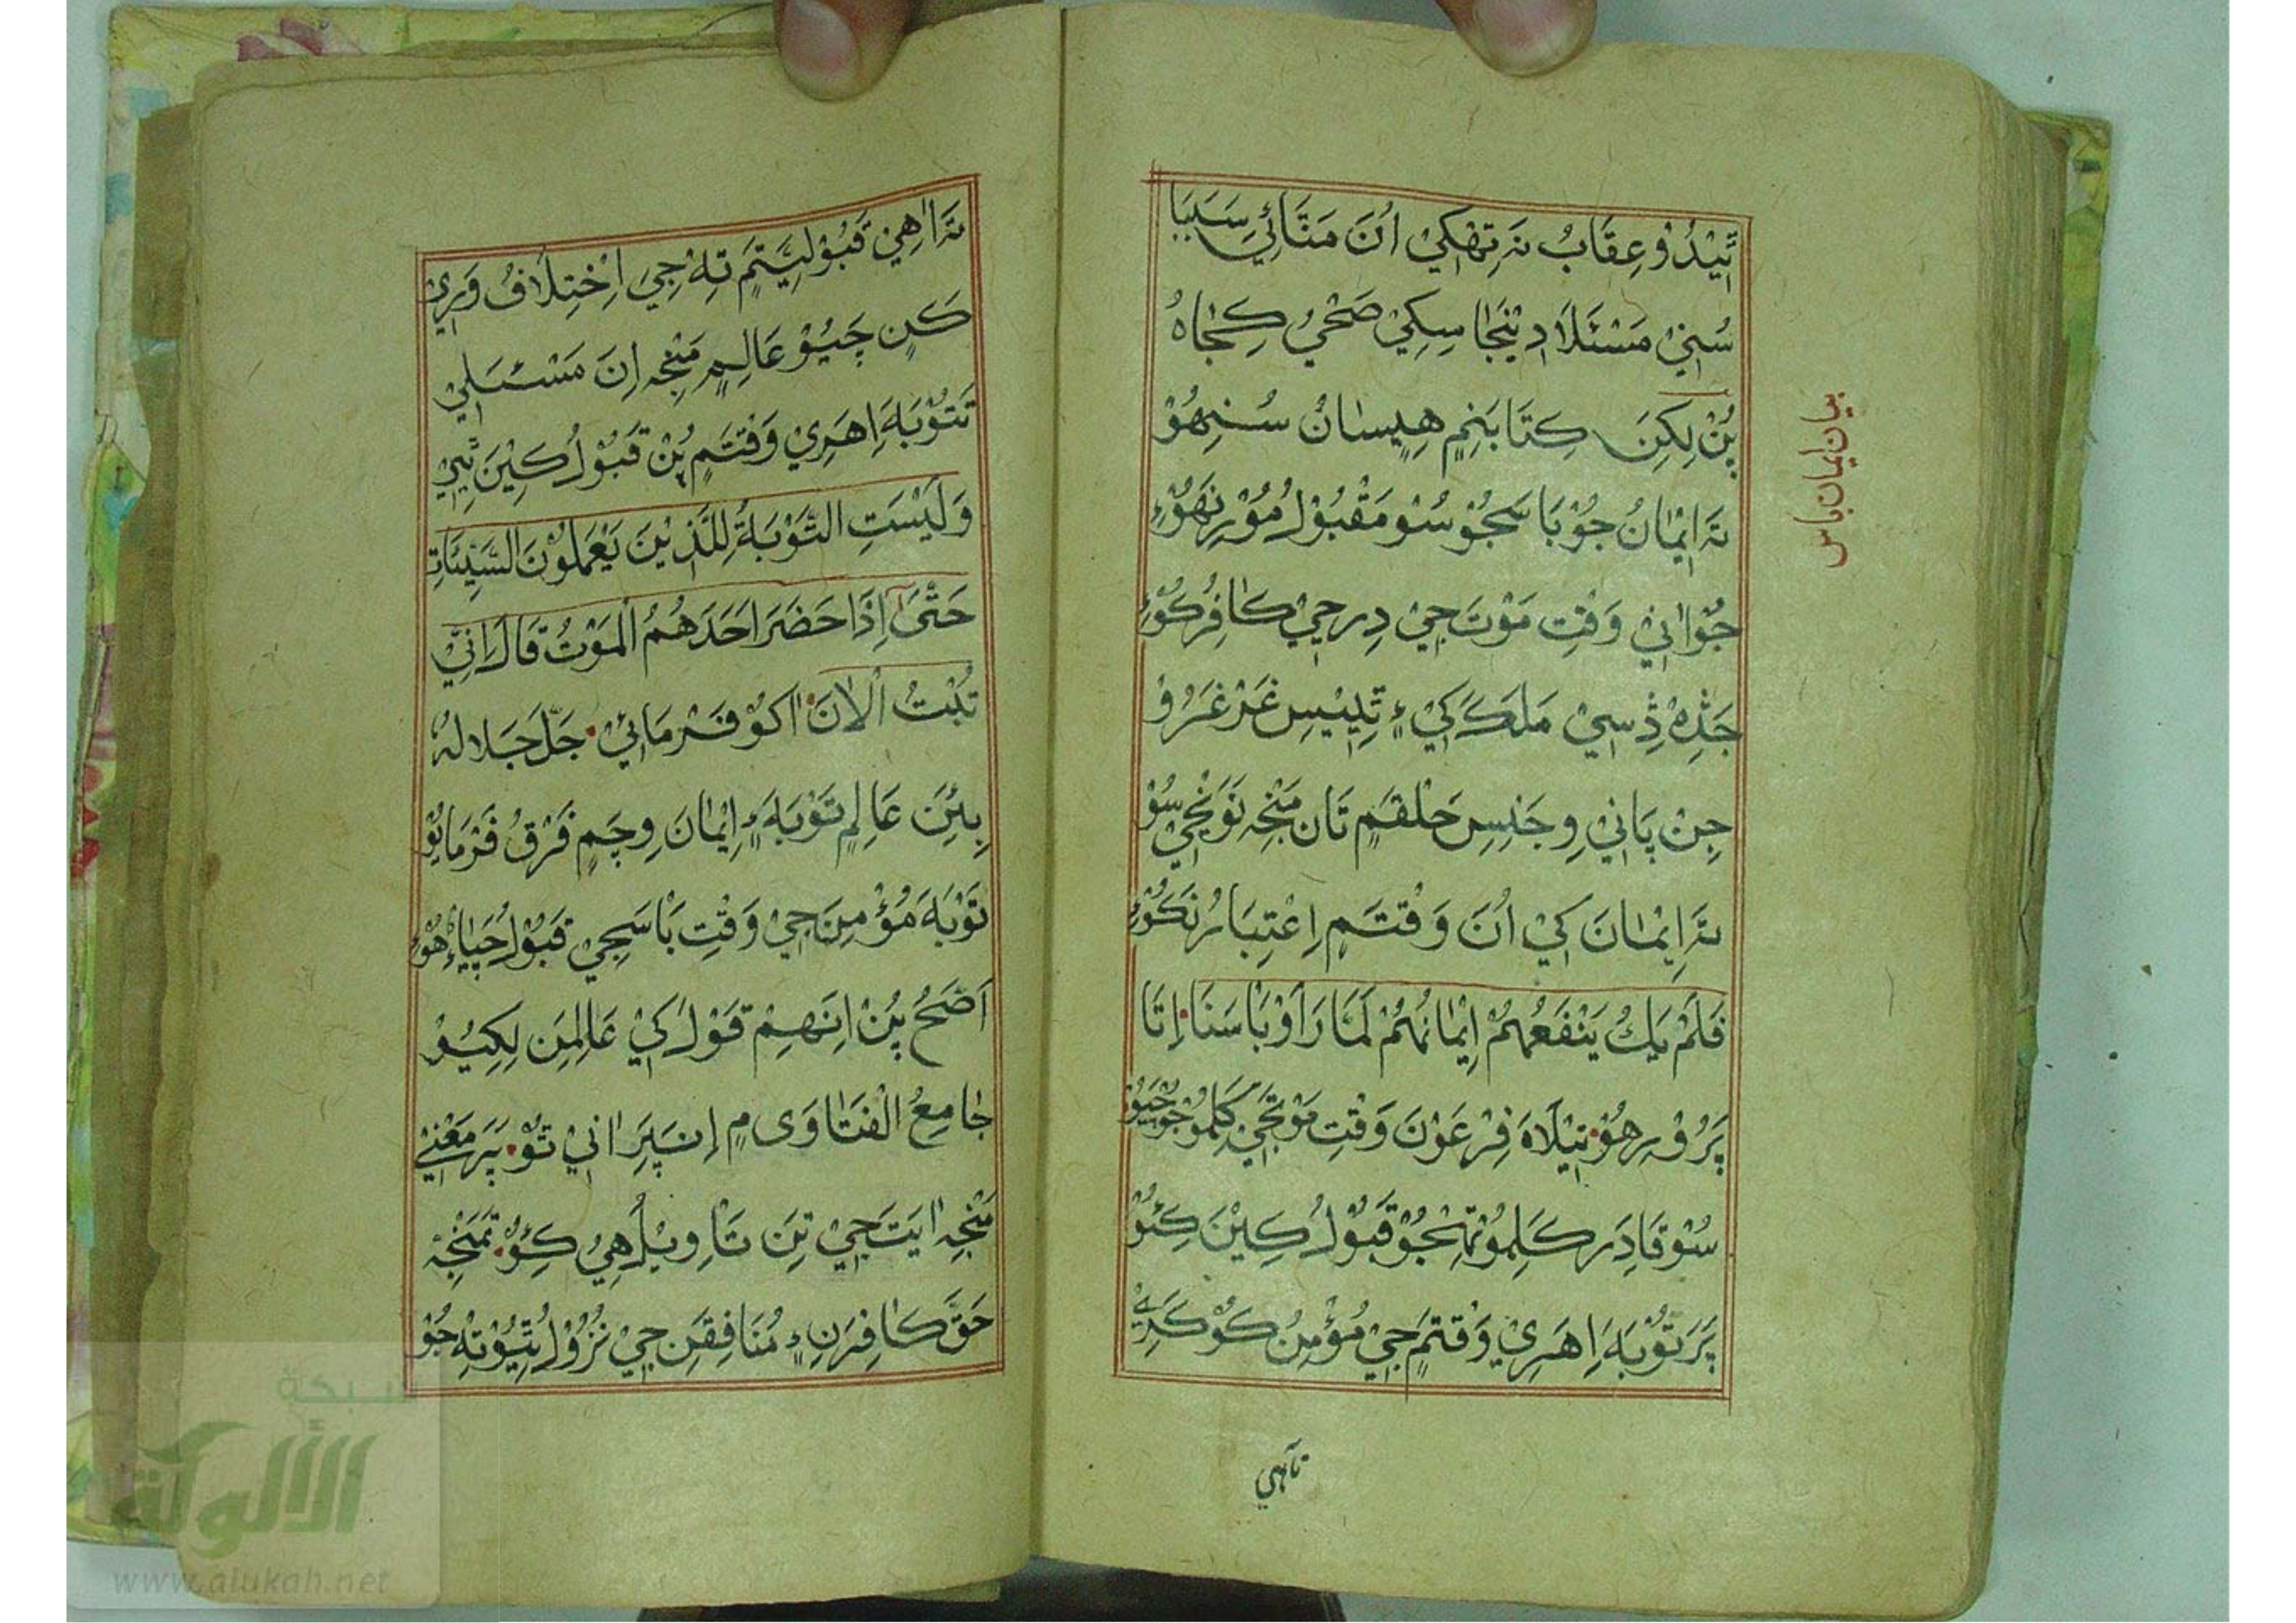 ٿِيْندُوْ عِقَابُ نَہ تِهکِيْ اُنَ مَتَائِيْ سَبَبَا
سُنِيْ مَسْئَلَا دِيْنجَا سِکِيْ صَحْيُ کِجَاہُ
پُنْ لِکِنَ کِتَابَنِمِ هِيسَانُ سُنِهُوْ
تہَ اِيْمَانُ جُوْ بَاسَجُوْ سُوْ مَقْبُوْلُ مُوْرِ نَهُوْءِ
جُوْ اٰنِيْ وَقْتِ مَوْتَ جِيْ دِرجِيْ کَافِرُ کُوْءِ
جَڎِہْ ڎِسِيْ مَلَکَ کِيْ ءٍ تِڍِيْسِ غَرْغَرُوْ
جِنْ پَانِيْ وِجَنِسِ حَلْقَمِ تَان مَنْجِہ نَوَنْجِيْ سُوْ
تہَ اِيْمَانَ کِيْ اُنَ وَقْتَمِ اِعْتِبَارُ نَکُوْءِ
فَلَمْ يَكُ يَنْفَعُهُمْ اِيْمَانُهُمْ لَمَّا رَاَوْ بَاْسَنَا اِتَا
پَرُوْرِهُوْ نِيْلَاہَ فِرْعَوْنَ وَقْتِ مَوْتَجِيْ کَلِمُوْ جُوْ چَيُوْ
سُوْ قَادِر کَلِمُوْ تِهجُوْ قَبُوْلُ کِيْنَ کِئُوْ
پَر تَوْبَہَ اِهَرِيْ وَقْتَمِ جِيْ مُؤْمِنُ کُوْ کَرِيْ
تَاهِيْ
بيان ايمان باس
تہَ اٰهِيْ قَبُوْلِيَّتَمِ تِہْ جِيَ اِخْتِلَافُ وَرِيْ
کَنِ چَيُوْ عَالِمِ مَنْجِہ اِنَ مَسْئَلِيْ
تَتَوْبَہَ اِهَرِيْ وَقْتَمِ پُنْ قَبُوْلُ کِيْنَ ٿِيْ
وَلَيْسَتِ التَّوْبَةُ لِلَّذِيْنَ يَعْمَلُوْنَ السَّيِّئَاتِ
حَتّٰىٓ اِذَا حَضَرَ اَحَدَهُمُ الْمَوْتُ قَالَ اِنِّيْ
تُبْتُ الْاٰنَ اکُوْ فَرْمَائِيْ جَلَّ جَلَالہُ
بِئَنِ عَالِمِ تَوْبَہَ ءٍ اِيْمَانَ وِچَمِ فَرْقُ فَرْمَايُوْ
تَوْبَہَ مُؤْمِنَ جِيْ وَقْتِ بَاْسَجِيْ قَبُوْلُ چَيَاءُ هُوْءِ
اَصَحُ پُنْ اِنَهِمْ قَوْلَ کِيْ عَالِمَنِ لِکِيُوْ
جَامِعُ الْفَتَاوٰى مِ اِنَ پَرِ اٰنِيْ تُوْ پَر مَعْنِيْ
مَنْجِہ اٰيَتَ جِيْ تِنَ تَاْوِيْلُ هِيُ کِئُوْ تمَنْجِہْ
حَقَّ کَافِرَنِ ءٍ مُنَافِقَنِ جِيْ نُزُوْلُ ٿِيُوْ تِہْ جُوْ
شبكة
الألوكة
www.alukah.net